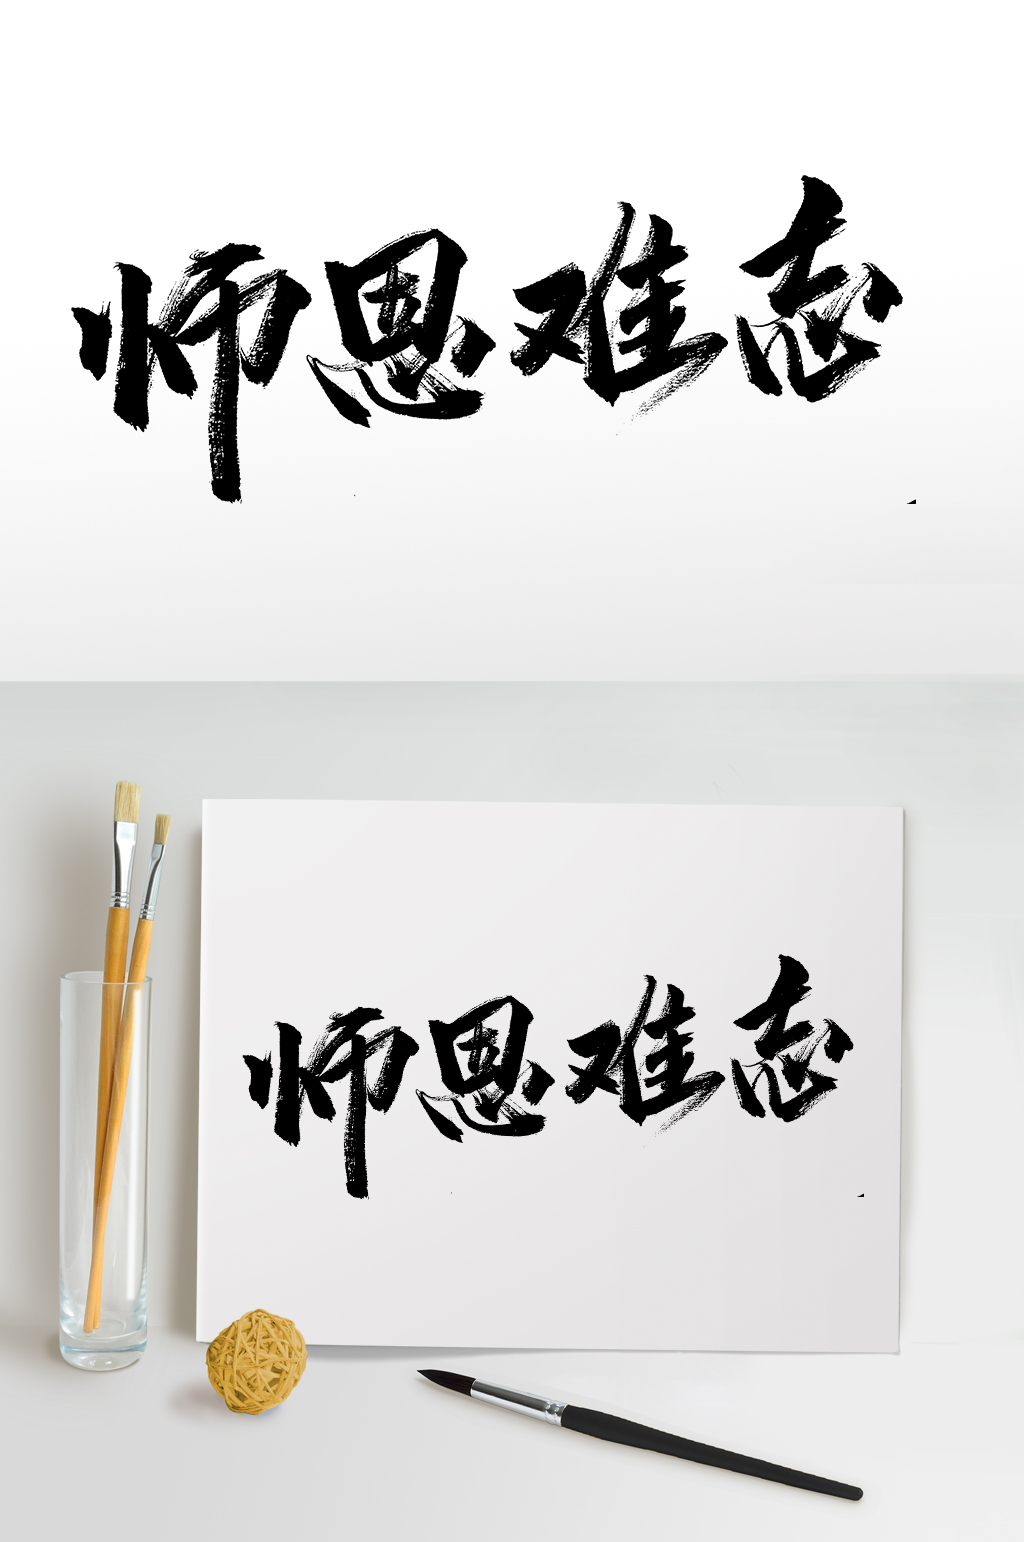 师恩难忘
师恩难忘